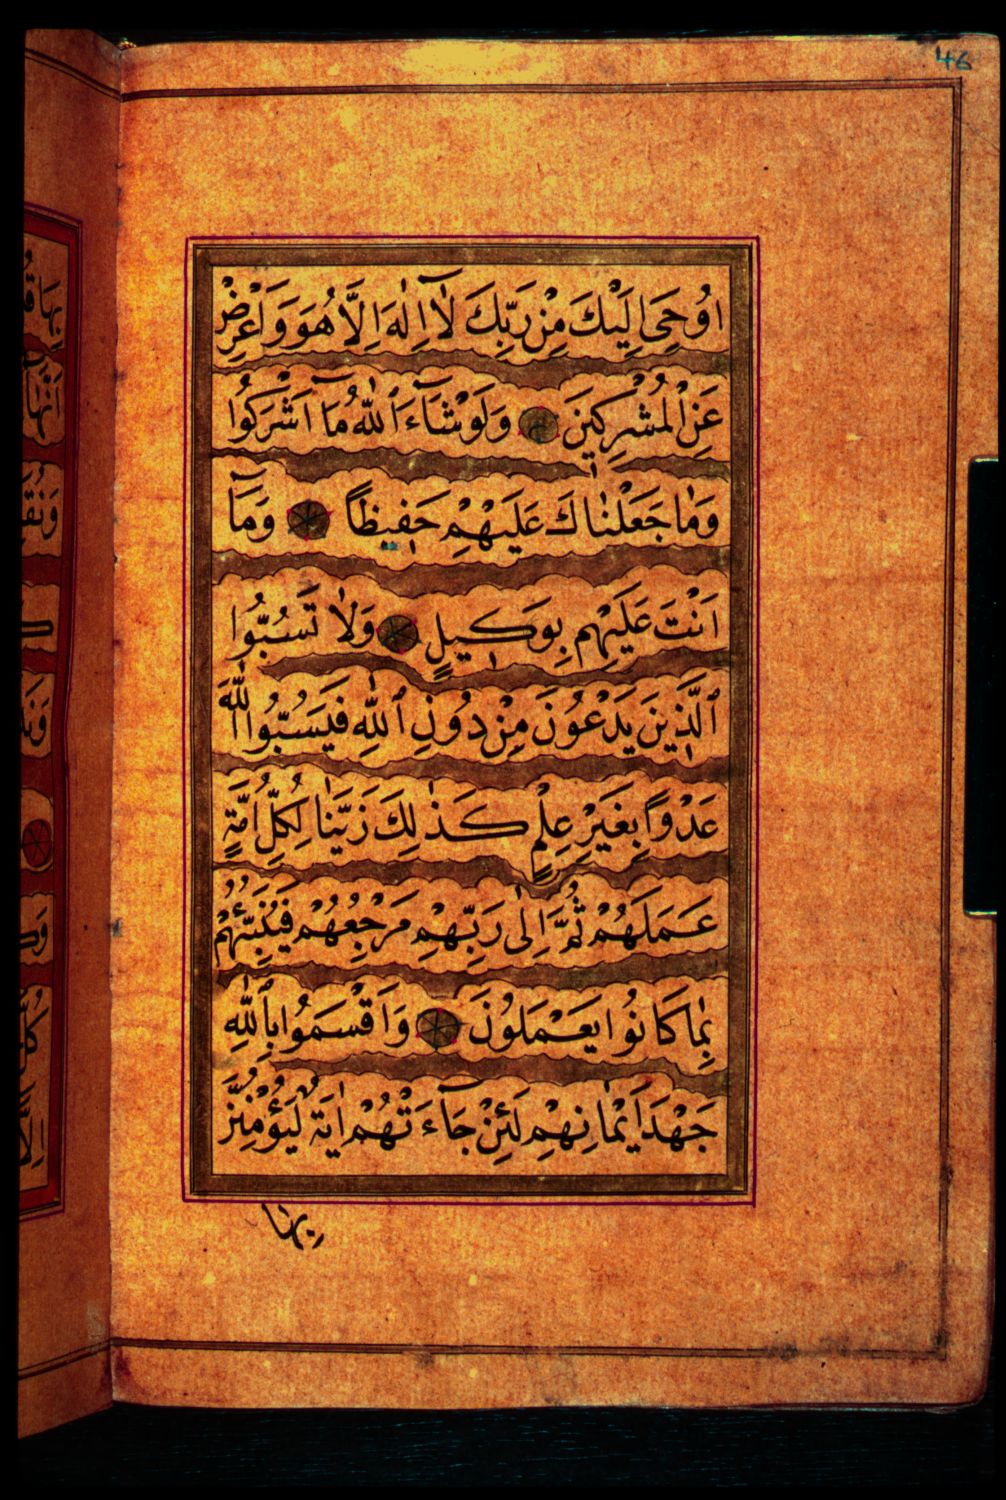 46
اُوحِىَ اِلَيْكَ مِنْ رَبِّكَ لَٓا اِلٰهَ اِلَّا هُوَ وَاَعْرِضْ
عَنِ الْمُشْرِكِينَ وَلَوْ شَٓاءَ اللّٰهُ مَٓا اَشْرَكُوا
وَمَا جَعَلْنَاكَ عَلَيْهِمْ حَفِيظًا وَمَٓا
اَنْتَ عَلَيْهِمْ بِوَكِيلٍ وَلَا تَسُبُّوا
الَّذِينَ يَدْعُونَ مِنْ دُونِ اللّٰهِ فَيَسُبُّوا اللّٰهَ
عَدْوًا بِغَيْرِ عِلْمٍ كَذٰلِكَ زَيَّنَّا لِكُلِّ اُمَّةٍ
عَمَلَهُمْ ثُمَّ اِلٰى رَبِّهِمْ مَرْجِعُهُمْ فَيُنَبِّئُهُمْ
بِمَا كَانُوا يَعْمَلُونَ وَاَقْسَمُوا بِاللّٰهِ
جَهْدَ اَيْمَانِهِمْ لَئِنْ جَٓاءَتْهُمْ اٰيَةٌ لَيُؤْمِنُنَّ
بِهَا